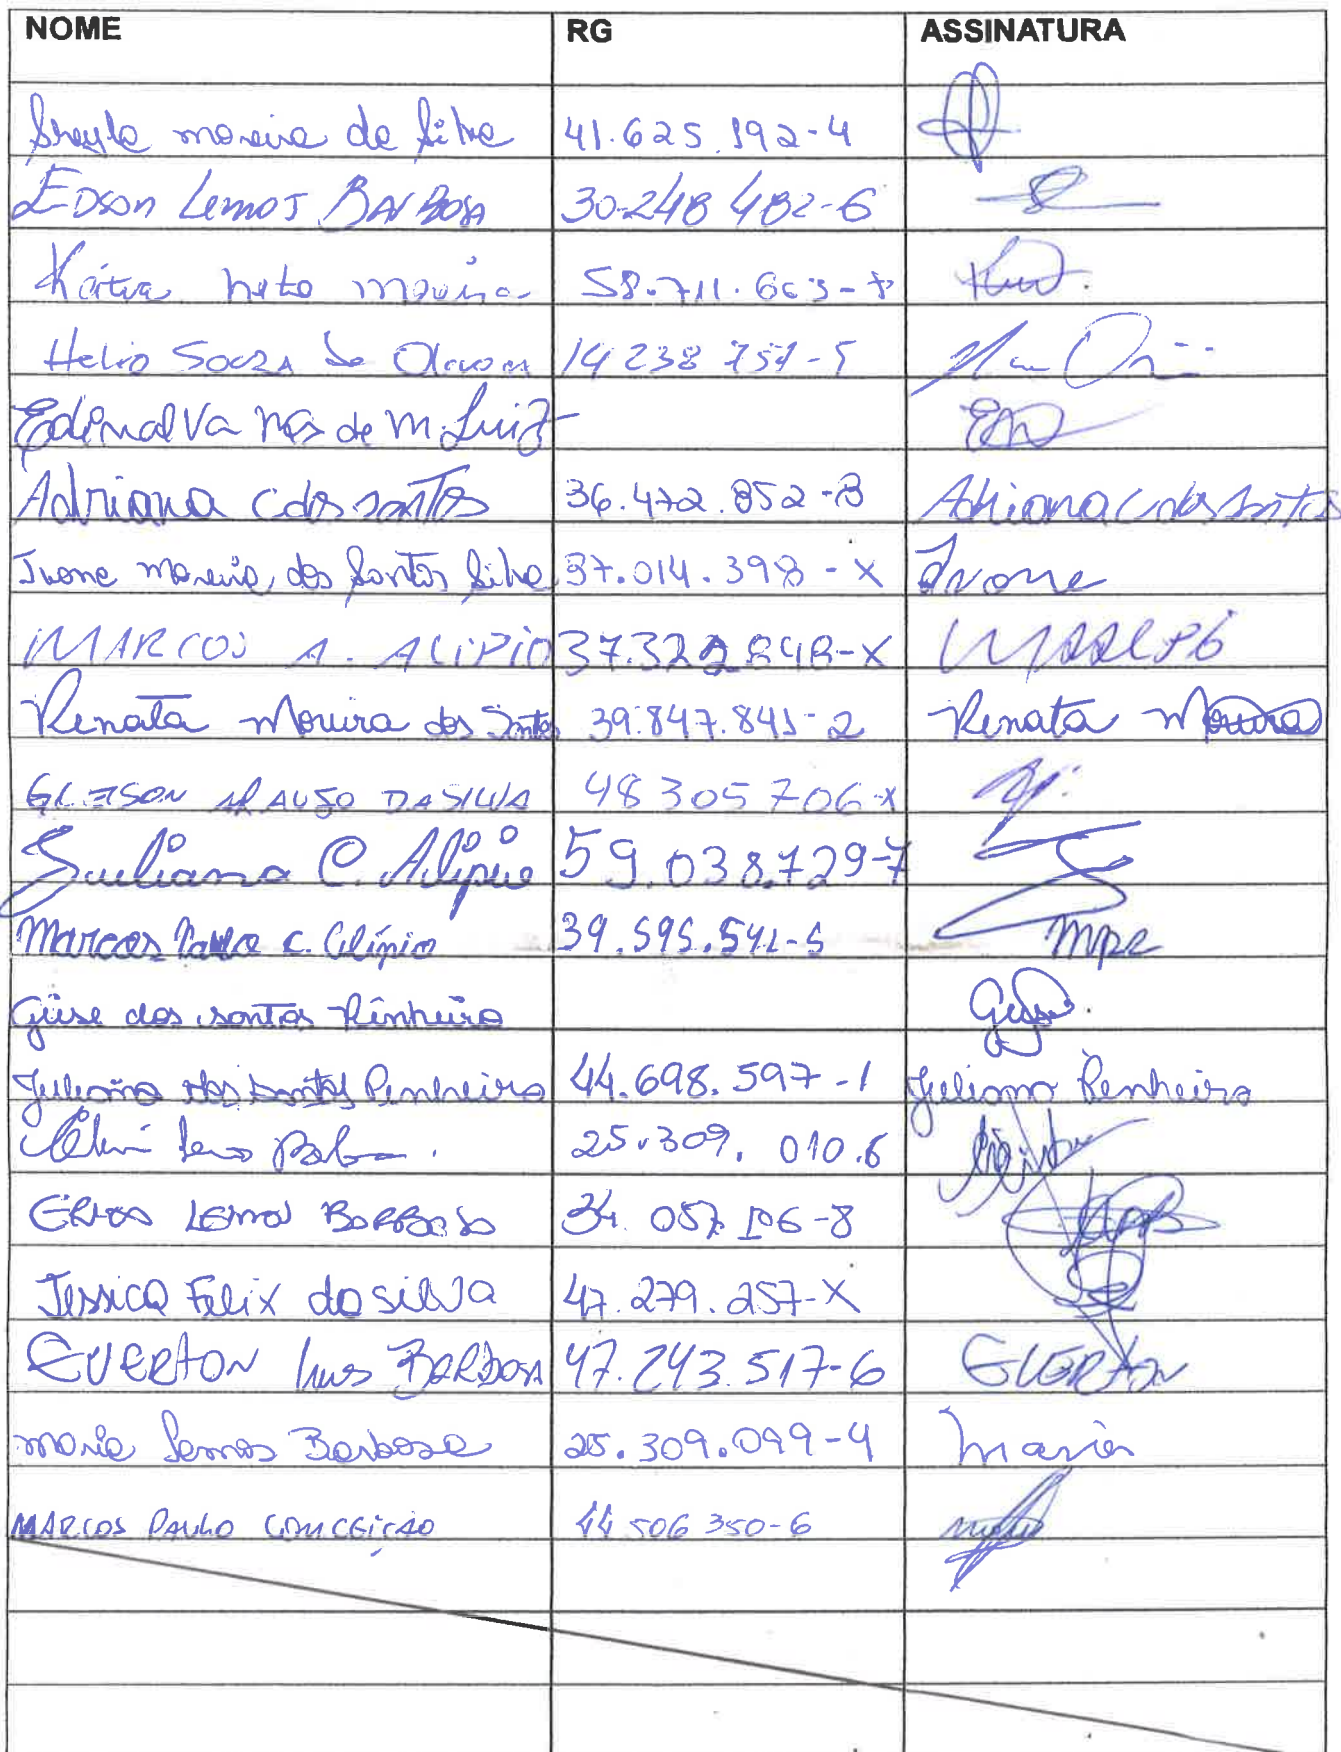 NOME RG ASSINATURA
moreira da Silva 41.625.192-4
EDSON Lemos BARBOSA 30.248 482-6
Kátia neto moreira 58.711.663-
Helio Souza de 14 238 751-5
Edinalva de M. Luiz
Adriana C dos santos 36.472.852-3 Adriana C dos Santos
Ivone Moreira dos Santos Silva 37.014.398-X Ivone
MARCOS A. ALIPIO 37.322 848-X
Renata Moreira dos Santos 39.847.841-2 Renata Moreira
GLEISON ARAUJO DA SILVA 48 305 706-X
Juliana C. Alípio 59.038.729-7
Marcos Paulo C. Alípio 39.595.541-5 mpc
Geise dos santos Pinheiro Geise.
Juliana dos Santos Pinheiro 44.698.597-1 Juliana Penheiro
25.309.010.6
LEMOS BARBOSA 34.057.106-8
Jessica Felix da silva 47.279.257-X
EVERTON BARBOSA 47.243.517-6 EVERTON
maria Lemos Barbosa 25.309.099-4 maria
MARCOS PAULO CONCEICAO 44 506 350-6